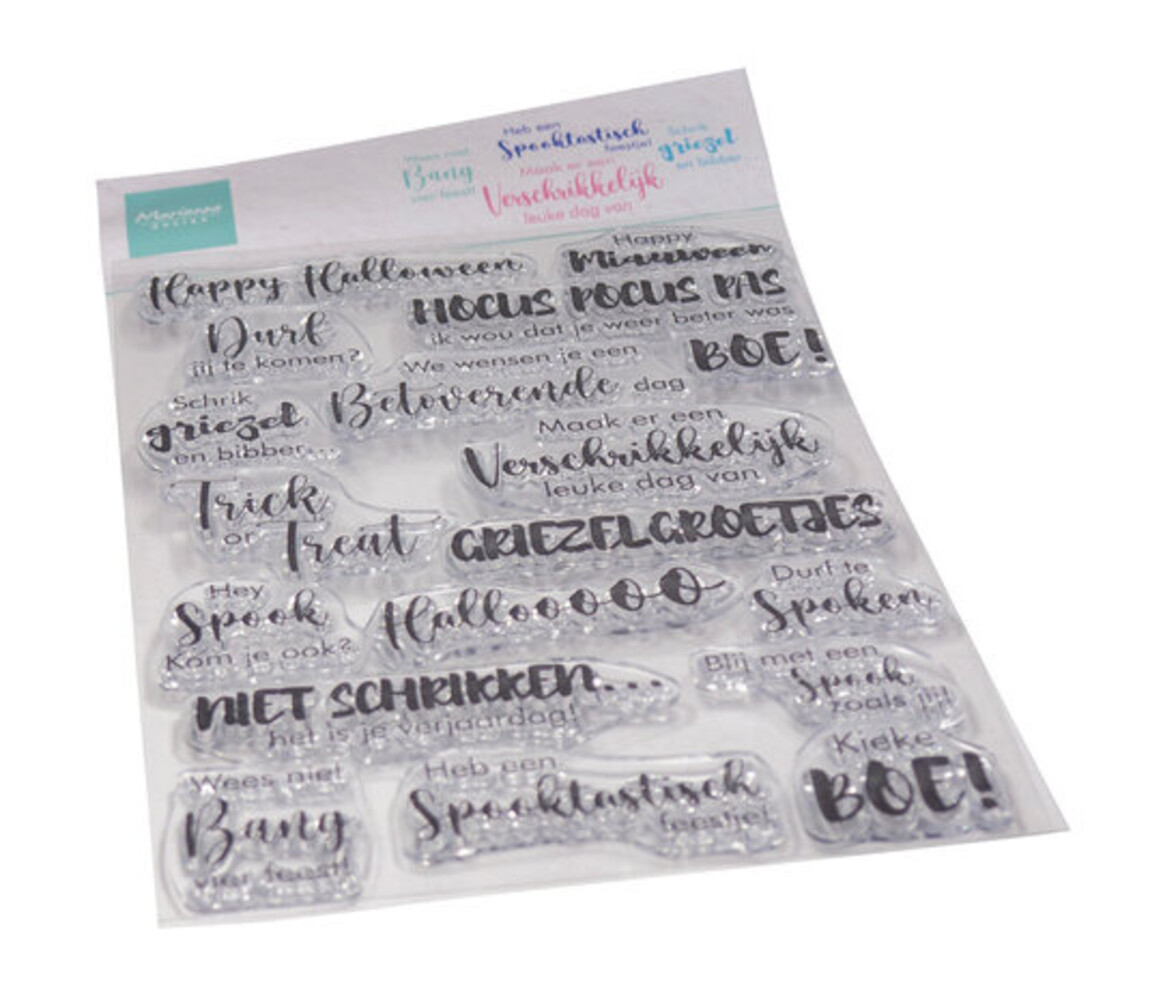 Marianne
design
Wees niet
Bang
vier feest!
Heb een
Spooktastisch
feestje!
Maak er een
Verschrikkelijk
leuke dag van
Schrik
griezel
en bibber
Happy Halloween
Happy
Miauween
HOCUS POCUS PAS
ik wou dat je weer beter was
Durf
jij te komen?
We wensen je een
Betoverende dag
BOE!
Schrik
griezel
en bibber...
Maak er een
Verschrikkelijk
leuke dag van
Trick
or Treat
GRIEZELGROETJES
Hey
Spook
Kom je ook?
Hallooooo
Durf te
Spoken
NIET SCHRIKKEN...
het is je verjaardag!
Blij met een
Spook
zoals jij!
Wees niet
Bang
vier feest!
Heb een
Spooktastisch
feestje!
Kieke
BOE!